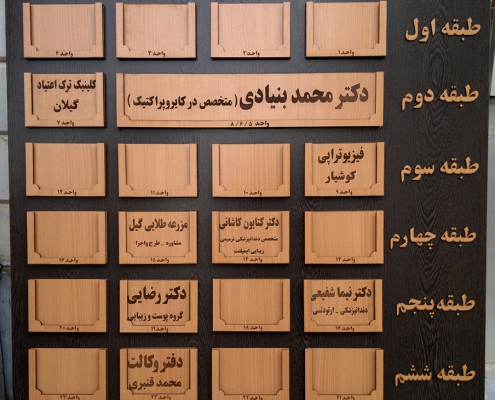 طبقه اول
واحد ۱
واحد ۲
واحد ۳
واحد ۴
طبقه دوم
دکتر محمد بنیادی (متخصص در کایروپراکتیک)
واحد ۵ / ۶ / ۸
کلینیک ترک اعتیاد
گیلان
واحد ۷
طبقه سوم
فیزیوتراپی
کوشیار
واحد ۹
واحد ۱۰
واحد ۱۱
واحد ۱۲
طبقه چهارم
واحد ۱۳
دکتر کتایون کاشانی
متخصص دندانپزشکی ترمیمی
زیبایی ایمپلنت
واحد ۱۴
مزرعه طلایی گیل
مشاوره _ طرح واجرا
واحد ۱۵
واحد ۱۶
طبقه پنجم
دکتر نیما شفیعی
دندانپزشکی _ ارتودنسی
واحد ۱۷
واحد ۱۸
دکتر رضایی
گروه پوست و زیبایی
واحد ۱۹
واحد ۲۰
طبقه ششم
واحد ۲۱
واحد ۲۲
دفتر وکالت
محمد قنبری
واحد ۲۳
واحد ۲۴